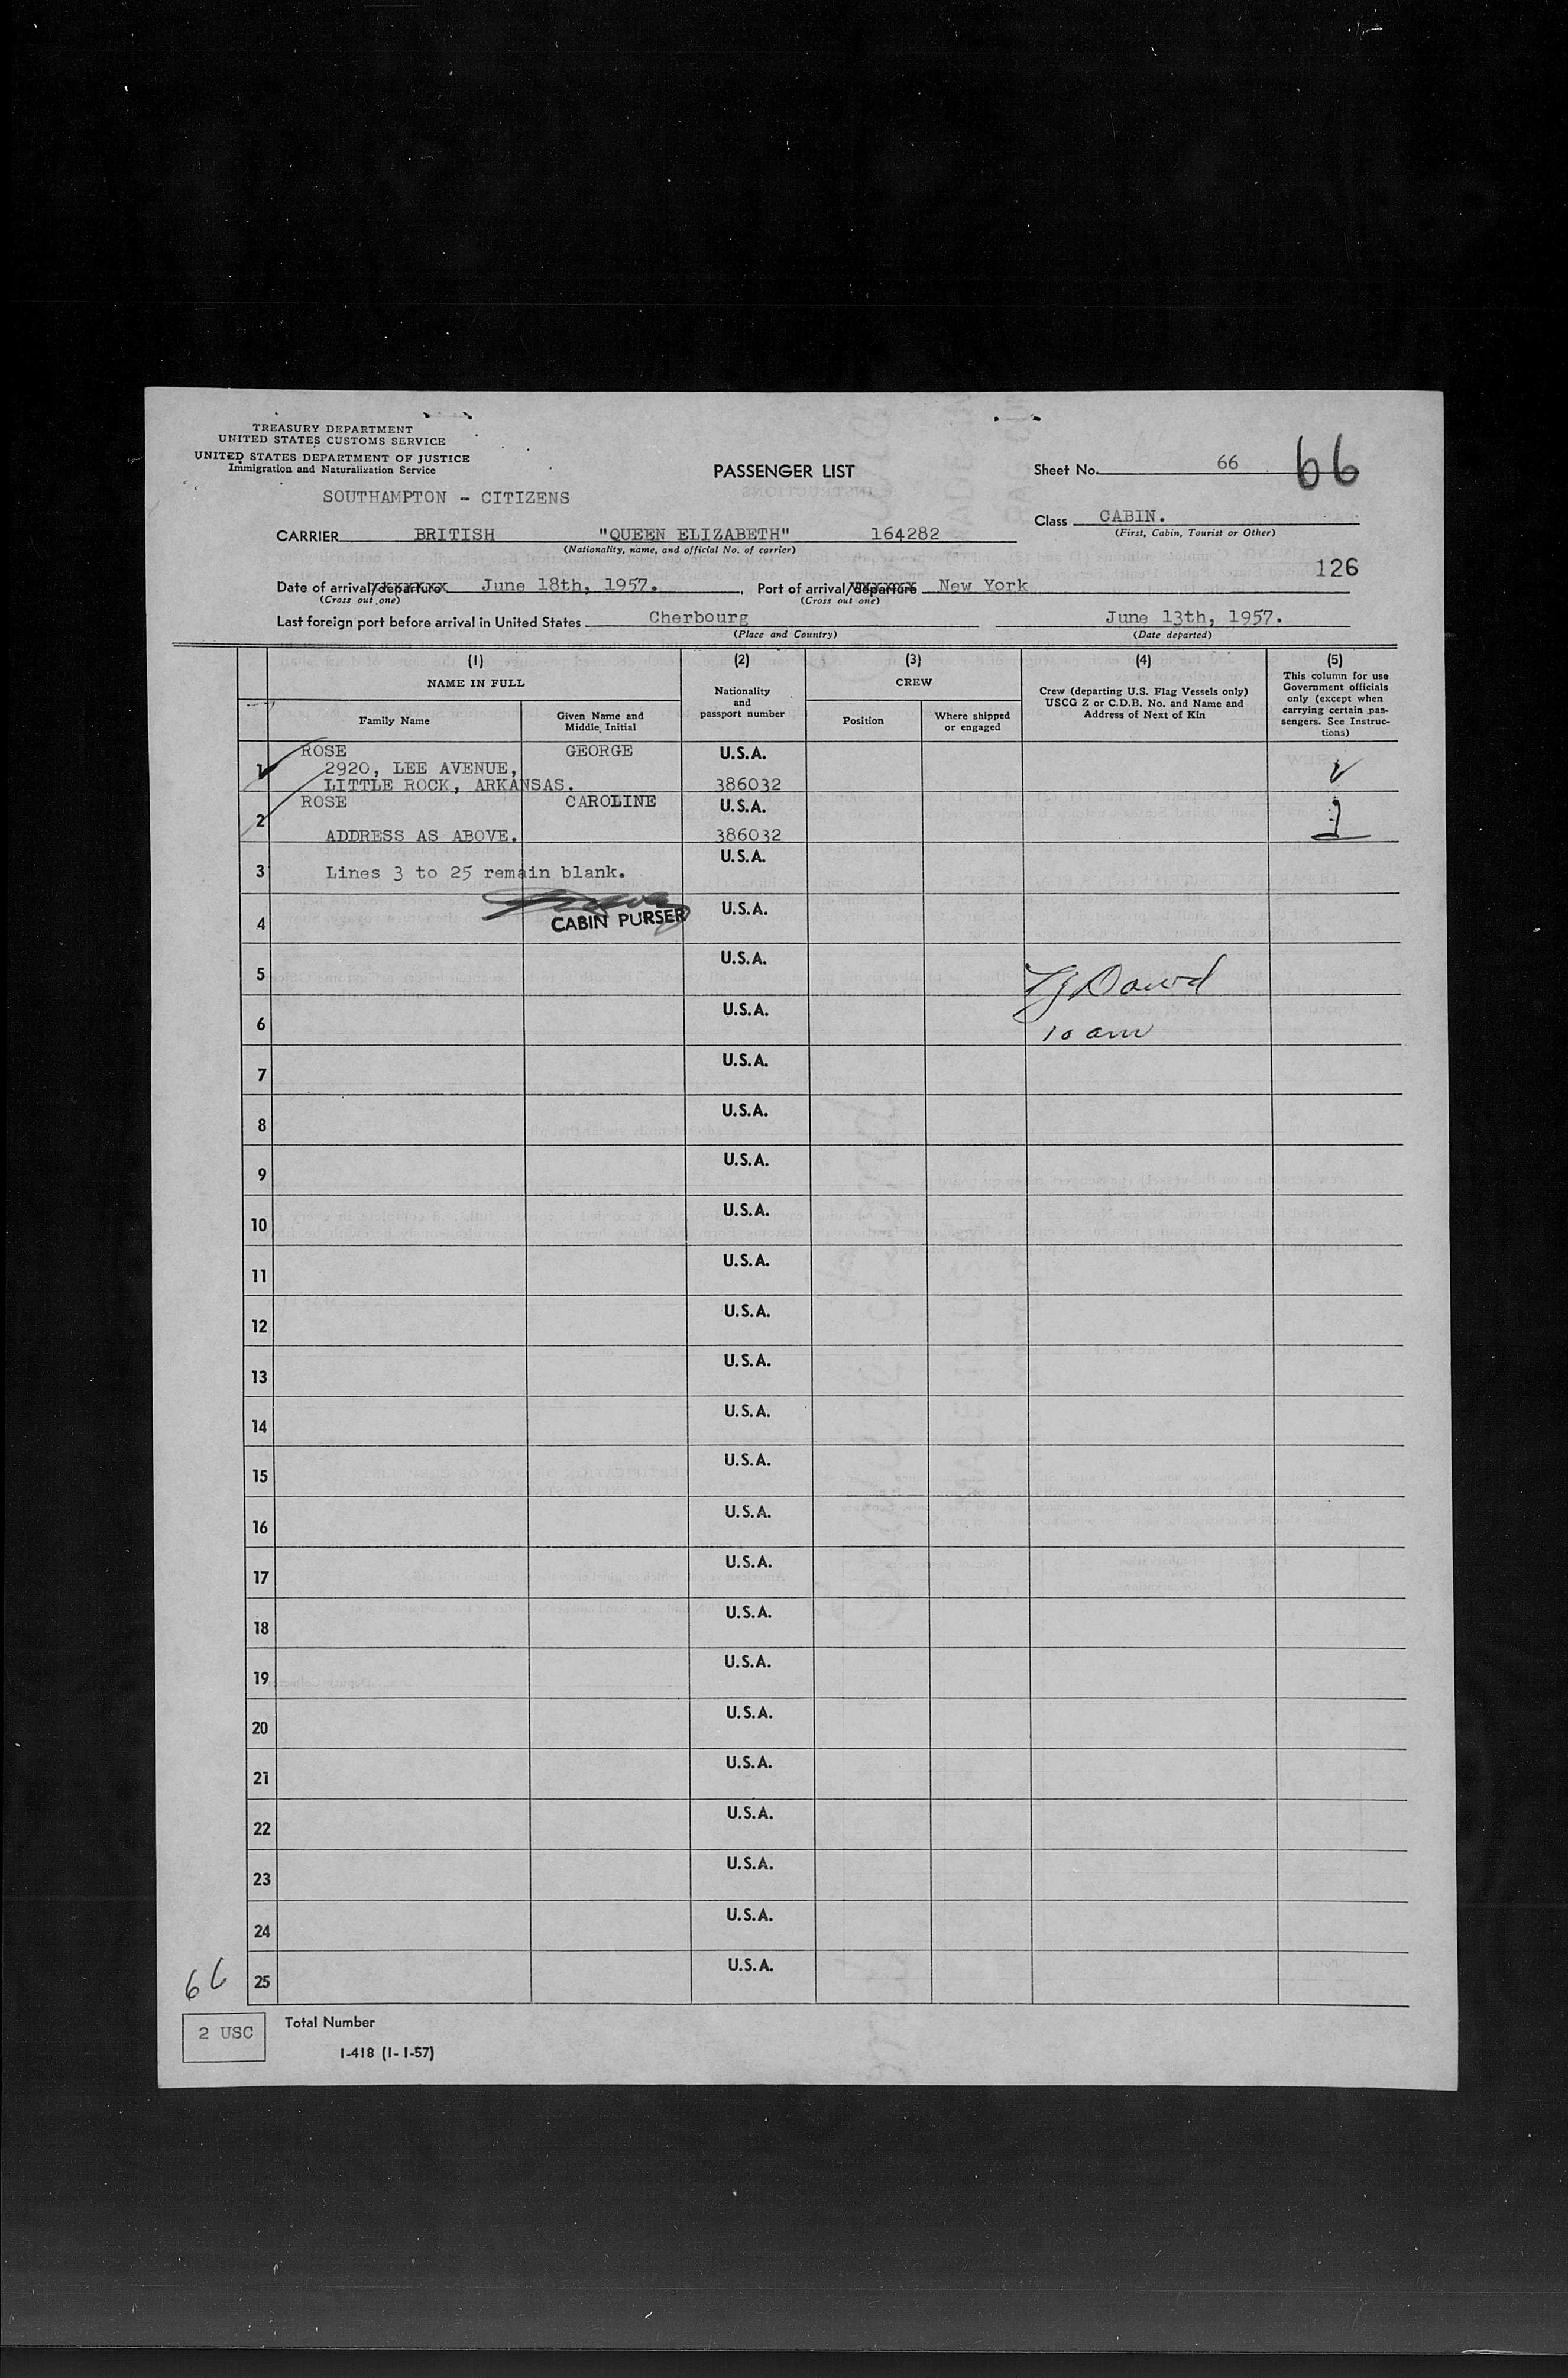 TREASURY DEPARTMENT
UNITED STATES CUSTOMS SERVICE
UNITED STATES DEPARTMENT OF JUSTICE
Immigration and Naturalization Service
PASSENGER LIST
Sheet No. 66 66
SOUTHAMPTON - CITIZENS
Class CABIN.
(First, Cabin, Tourist or Other)
CARRIER BRITISH "QUEEN ELIZABETH" 164282
(Nationality, name, and official No. of carrier)
126
Date of arrival/departure June 18th, 1957. Port of arrival/departure New York
(Cross out one) (Cross out one)
Last foreign port before arrival in United States Cherbourg June 13th, 1957.
(Place and Country) (Date departed)
(1) (2) (3) (4) (5)
NAME IN FULL
Family Name
Given Name and Middle Initial
Nationality and passport number
CREW
Position
Where shipped or engaged
Crew (departing U.S. Flag Vessels only) USCG Z or C.D.B. No. and Name and Address of Next of Kin
This column for use Government officials only (except when carrying certain pas-sengers. See Instruc-tions)
1 ROSE GEORGE U.S.A.
2920, LEE AVENUE,
LITTLE ROCK, ARKANSAS. 386032
2 ROSE CAROLINE U.S.A.
ADDRESS AS ABOVE. 386032
2
3 Lines 3 to 25 remain blank. U.S.A.
4 CABIN PURSER U.S.A.
5 U.S.A.
6 U.S.A. 10 am
7 U.S.A.
8 U.S.A.
9 U.S.A.
10 U.S.A.
11 U.S.A.
12 U.S.A.
13 U.S.A.
14 U.S.A.
15 U.S.A.
16 U.S.A.
17 U.S.A.
18 U.S.A.
19 U.S.A.
20 U.S.A.
21 U.S.A.
22 U.S.A.
23 U.S.A.
24 U.S.A.
25 U.S.A.
66
2 USC Total Number
I-418 (1-1-57)